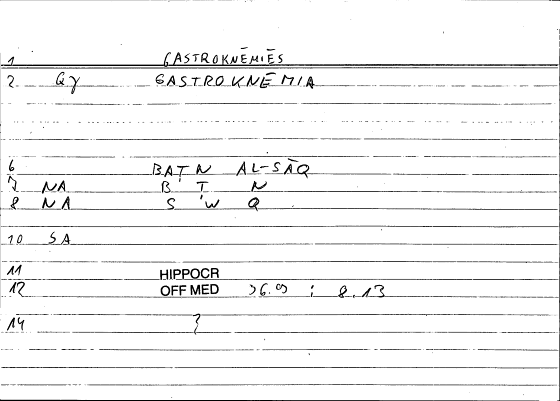 1 GASTROKNĒMIĒS
2 Gγ GASTROKNĒMIA
6 BAṬN AL-SĀQ
7 NA B Ṭ N
8 NA S W Q
10 SA
11 HIPPOCR
12 OFF MED 36.09 ; 8.13
14 }